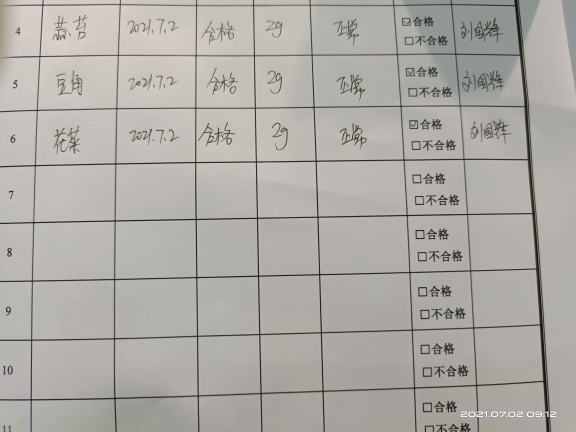 4 蒜苔 2021.7.2 合格 2g 正常 ☑合格 刘国辉
□不合格
5 豆角 2021.7.2 合格 2g 正常 ☑合格 刘国辉
□不合格
6 花菜 2021.7.2 合格 2g 正常 ☑合格 刘国辉
□不合格
7 □合格
□不合格
8 □合格
□不合格
9 □合格
□不合格
10 □合格
□不合格
11 □合格
□不合格
2021.07.02 09:12